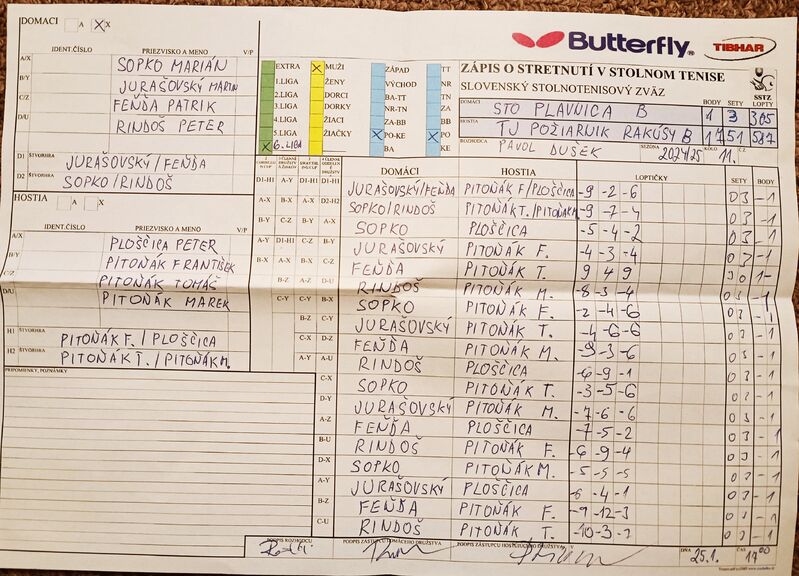 DOMACI A X
IDENT.ČÍSLO PRIEZVISKO A MENO V/P
A/X SOPKO MARIÁN
B/Y JURAŠOVSKÝ MARTIN
C/Z FEŇĎA PATRIK
D/U RINDOŠ PETER
D1 ŠTVORHRA JURAŠOVSKÝ/FEŇĎA
D2 ŠTVORHRA SOPKO/RINDOŠ
HOSTIA A X
IDENT.ČÍSLO PRIEZVISKO A MENO V/P
A/X PLOŠČICA PETER
B/Y PITOŇÁK FRANTIŠEK
C/Z PITOŇÁK TOMÁŠ
D/U PITOŇÁK MAREK
H1 ŠTVORHRA PITOŇÁK F./PLOŠČICA
H2 ŠTVORHRA PITOŇÁK T./PITOŇÁK M.
PRIPOMIENKY, POZNÁMKY
EXTRA X MUŽI ZÁPAD TT
1.LIGA ŽENY VÝCHOD NR
2.LIGA DORCI BA-TT TN
3.LIGA DORKY NR-TN ZA
4.LIGA ŽIACI ZA-BB BB
5.LIGA ŽIAČKY X PO-KE X PO
X 6.LIGA BA KE
Butterfly TIBHAR
ZÁPIS O STRETNUTÍ V STOLNOM TENISE
SLOVENSKÝ STOLNOTENISOVÝ ZVÄZ SSTZ
DOMÁCI STO PLAVNICA B BODY 1 SETY 3 LOPTY 305
HOSTIA TJ POŽIARNIK RAKÚSY B 17 51 587
ROZHODCA PAVOL DUŠEK SEZÓNA 2024/25 KOLO 11. Č.
DOMÁCI HOSTIA LOPTIČKY SETY BODY
D1-H1 A-Y D1-H1 D1-H1 JURAŠOVSKÝ/FEŇĎA PITOŇÁK F/PLOŠČICA -9 -2 -6 03 -1
A-X B-X A-X D2-H2 SOPKO/RINDOŠ PITOŇÁK T./PITOŇÁK M. -9 -7 -4 03 -1
B-Y C-Z B-Y A-X SOPKO PLOŠČICA -5 -4 -2 03 -1
A-Y D1-H1 C-Z B-Y JURAŠOVSKÝ PITOŇÁK F. -4 -3 -4 03 -1
B-X A-X B-X C-Z FEŇĎA PITOŇÁK T. 9 4 9 30 1-
B-Z A-Z D-U RINDOŠ PITOŇÁK M. -8 -3 -4 03 -1
C-Y C-Y B-X SOPKO PITOŇÁK F. -2 -4 -6 03 -1
B-Z C-Y JURAŠOVSKÝ PITOŇÁK T. -4 -6 -6 03 -1
C-X D-Z FEŇĎA PITOŇÁK M. -9 -3 -6 03 -1
A-Y A-U RINDOŠ PLOŠČICA -6 -9 -1 03 -1
C-X SOPKO PITOŇÁK T. -3 -5 -6 03 -1
D-Y JURAŠOVSKÝ PITOŇÁK M. -7 -6 -6 03 -1
A-Z FEŇĎA PLOŠČICA -7 -5 -2 03 -1
B-U RINDOŠ PITOŇÁK F. -6 -9 -4 03 -1
D-X SOPKO PITOŇÁK M. -5 -5 -5 03 -1
A-Y JURAŠOVSKÝ PLOŠČICA -6 -4 -1 03 -1
B-Z FEŇĎA PITOŇÁK F. -9 -12 -3 03 -1
C-U RINDOŠ PITOŇÁK T. -10 -3 03 -1
PODPIS ROZHODCU PODPIS ZÁSTUPCU DOMÁCEHO DRUŽSTVA PODPIS ZÁSTUPCU HOSŤUJÚCEHO DRUŽSTVA V DŇA 25.1. ČAS 17:00